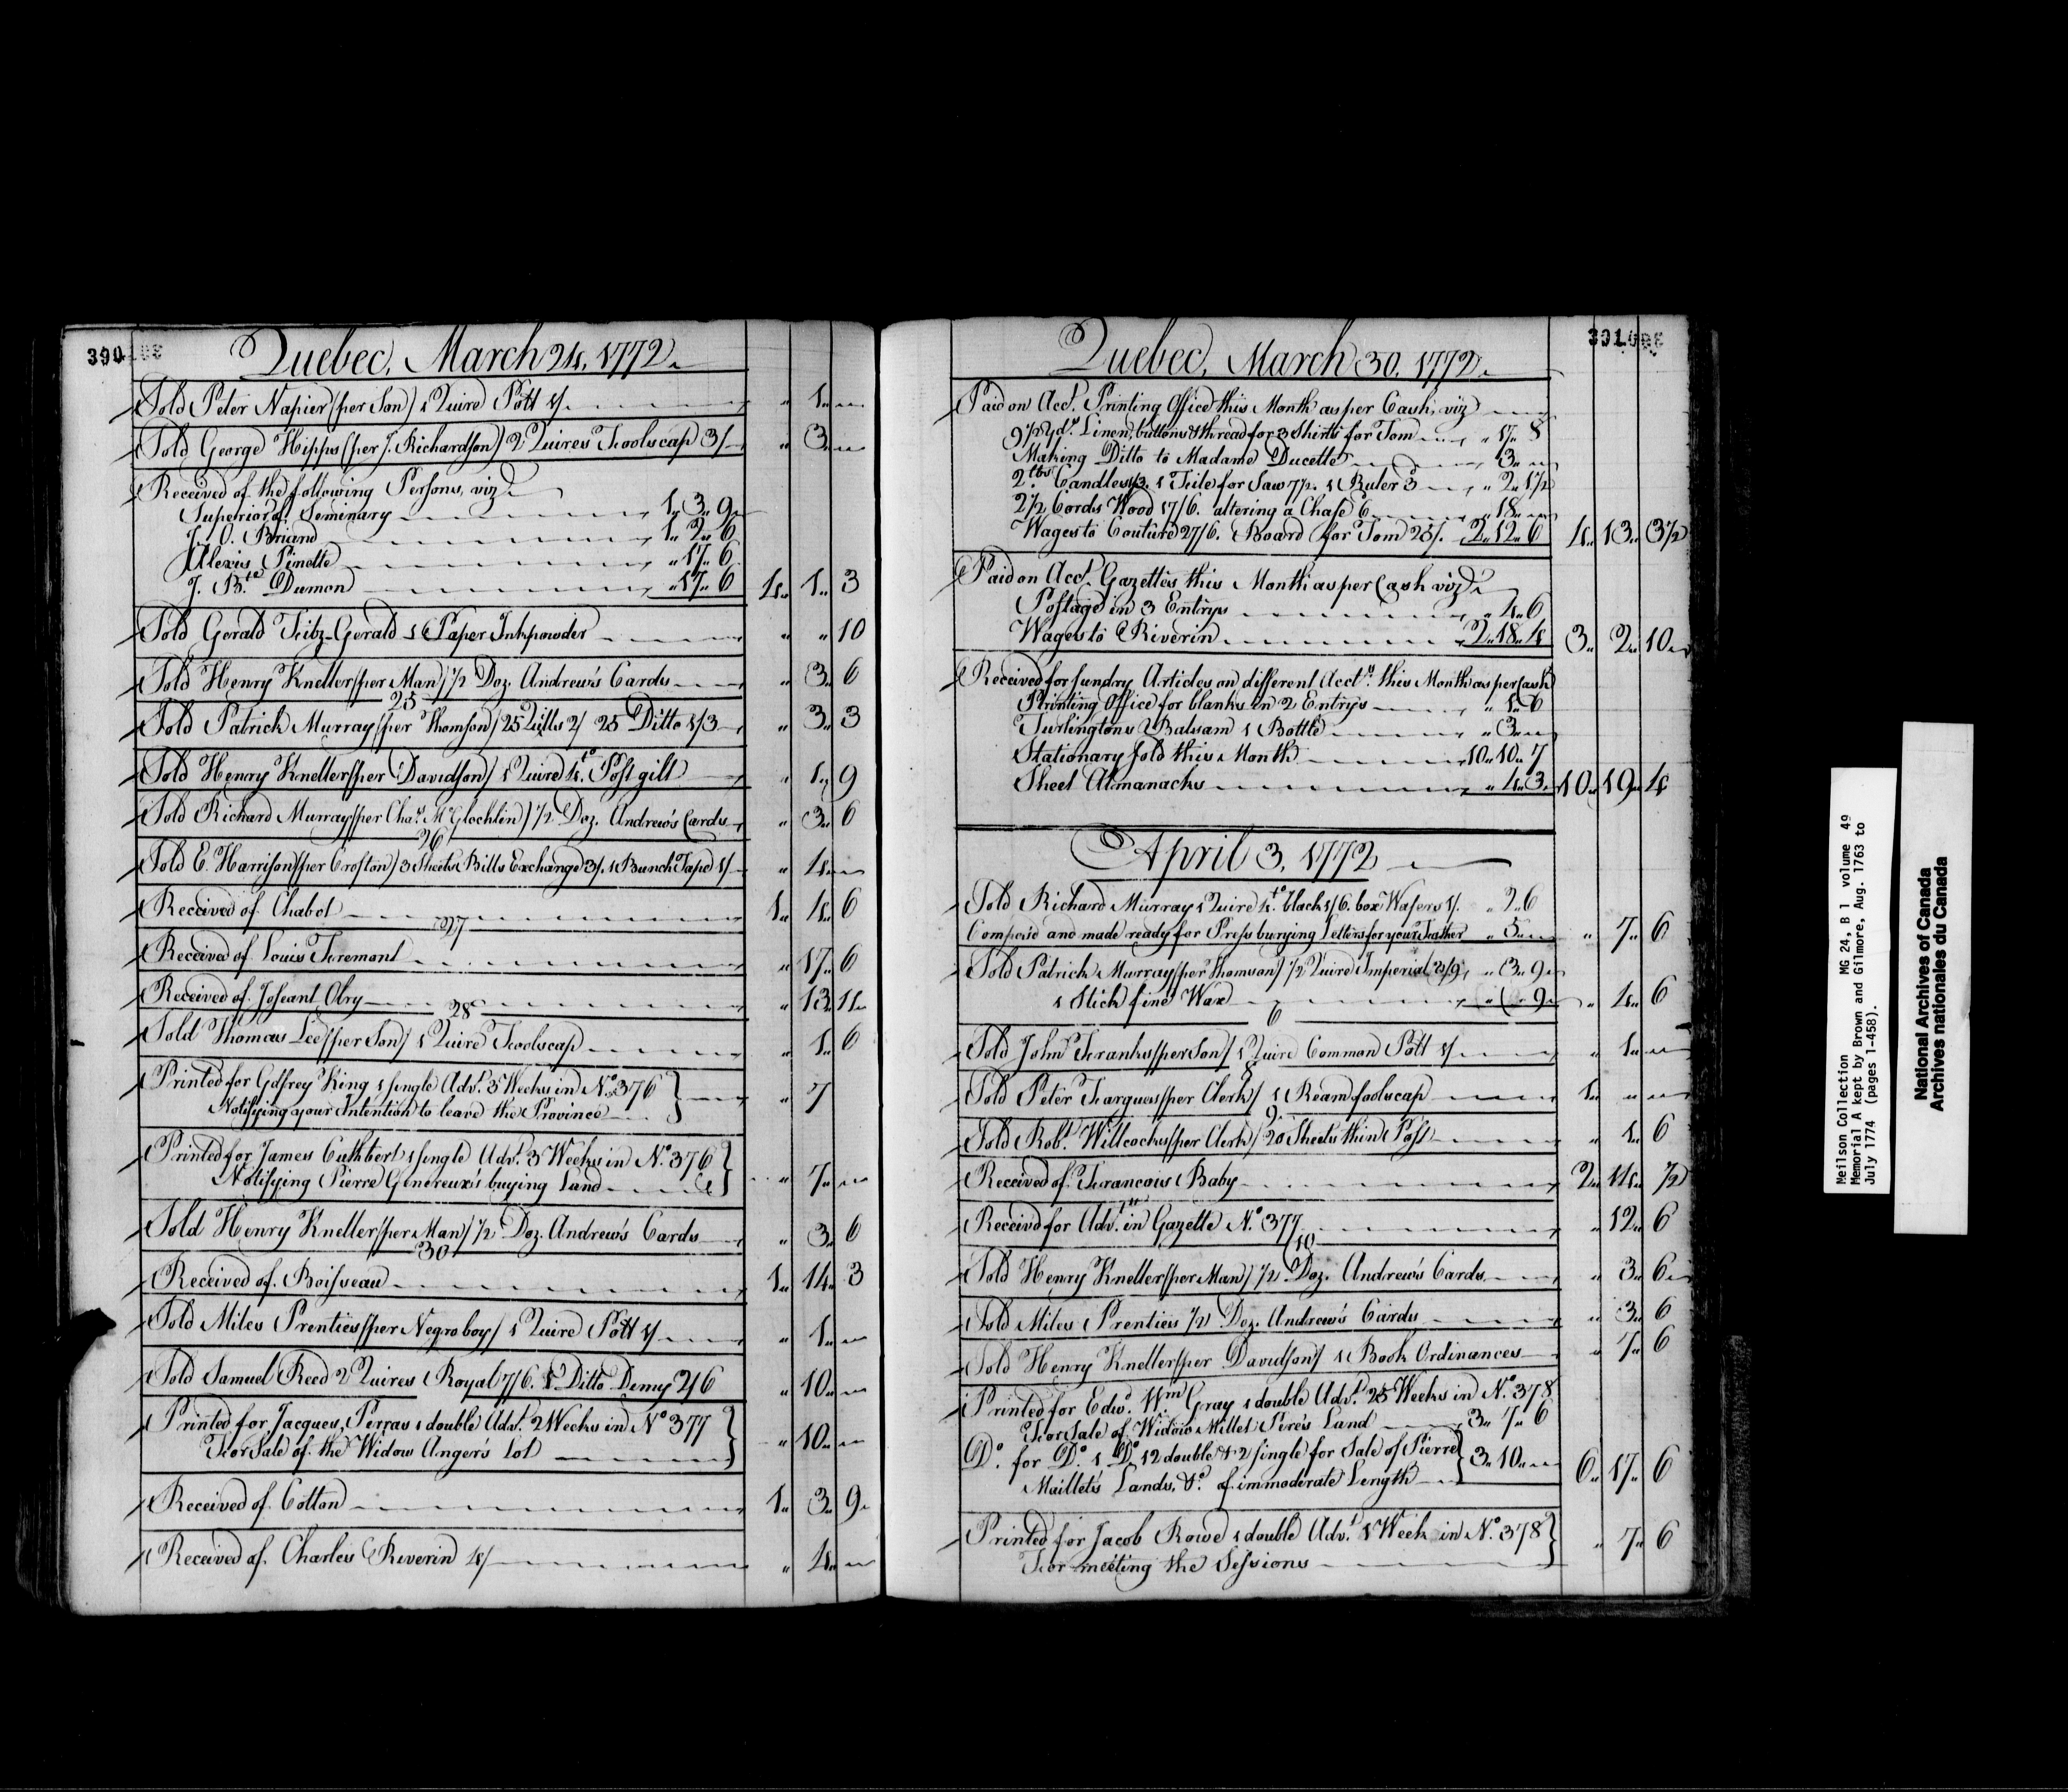 390
Quebec, March 24, 1772.
Sold Peter Napier (per Son) 1 Quire Pott 1/. " 1 "
Sold George Hipps (per J. Richardson) 2 Quires Foolscap 3/ " 3 "
Received of the following Persons, viz.
Superior of Seminary 1 " 3 " 9
J. O. Briand 1 " 2 " 6
Alexis Pinette " 17 " 6
J. B.te Dumon " 17 " 6 4 " 1 " 3
Sold Gerald Fitz-Gerald 1 Paper Inkpowder " " 10
Sold Henry Kneller (per Man) 1/2 Doz. Andrew's Cards " 3 " 6
25
Sold Patrick Murray (per Thomson) 25 Quills 2/ 25 Ditto 1/3 " 3 " 3
Sold Henry Kneller (per Davidson) 1 Quire 4.to Post gilt " 1 " 9
Sold Richard Murray (per Cha.s McGlochlin) 1/2 Doz. Andrew's Cards " 3 " 6
26
Sold E. Harrison (per Crofton) 3 Sheets Bills Exchange 3/. 1 Bunch Tape 1/ " 4 "
Received of Chabot 1 " 4 " 6
27
Received of Louis Fremont " 17 " 6
Received of Joseant Olry " 13 " 11
28
Sold Thomas Lee (per Son) 1 Quire Foolscap " 1 " 6
Printed for Godfrey King 1 single Adv.t 3 Weeks in N.o 376
Notifying your Intention to leave the Province " 7
Printed for James Cuthbert 1 single Adv.t 3 Weeks in N.o 376
Notifying Pierre Genereux's buying Land " 7 "
Sold Henry Kneller (per Man) 1/2 Doz. Andrew's Cards " 3 " 6
30
Received of Boisseau 1 " 14 " 3
Sold Miles Prenties (per Negro boy) 1 Quire Pott 1/ " 1 "
Sold Samuel Reed 2 Quires Royal 7/6. 1 Ditto Demy 2/6 " 10 "
Printed for Jacques Perras 1 double Adv.t 2 Weeks in N.o 377
For Sale of the Widow Anger's Lot " 10 "
Received of Cotton 1 " 3 " 9
Received of Charles Riverin 4/ " 4 "
391
Quebec, March 30, 1772.
Paid on Acc.t Printing Office this Month as per Cash, viz
9 1/2 Yd.s Linen, buttons & thread for 3 Shirts for Tom " 17 " 8
Making Ditto to Madame Ducette " 3 "
2 lbs Candles 1/3. 1 File for Saw 7 1/2. 1 Ruler 3 " 2 " 1 1/2
2 1/2 Cords Wood 17/6. altering a Chase 6 " 18 "
Wages to Couture 27/6. Board for Tom 25/. 2 " 12 " 6 4 " 13 " 3 1/2
Paid on Acc.t Gazettes this Month as per Cash viz.
Postage in 3 Entrys " 4 " 6
Wages to Riverin 2 " 18 " 4 3 " 2 " 10
Received for sundry Articles on different Acct.s this Month as per Cash
Printing Office for blanks in 2 Entrys " 1 " 6
Turlingtons Balsam 1 Bottle " 3 "
Stationary sold this Month 10 " 10 " 7
Sheet Almanacks " 4 " 3 10 " 19 " 4
April 3, 1772
Sold Richard Murray 1 Quire 4.to black 1/6. box Wafers 1/. " 2 " 6
Compos'd and made ready for Press burying Letters for your Father " 5 " " 7 " 6
Sold Patrick Murray (per Thomson) 1/2 Quire Imperial 3/9 " 3 " 9
1 Stick fine Wax " " 9 " 4 " 6
6
Sold John Franks (per Son) 1 Quire Common Pott 1/ " 1 "
8
Sold Peter Fargues (per Clerk) 1 Ream foolscap 1 " " "
9.
Sold Rob.t Willcocks (per Clerk) 20 Sheets thin Post " 1 " 6
Received of Francois Baby 2 " 14 " 1/2
Receiv'd for Adv.ts in Gazette N.o 377 " 12 " 6
10
Sold Henry Kneller (per Man) 1/2 Doz. Andrew's Cards " 3 " 6
Sold Miles Prenties 1/2 Doz. Andrew's Cards " 3 " 6
Sold Henry Kneller (per Davidson) 1 Book Ordinances " 7 " 6
Printed for Edw.d W.m Gray 1 double Adv.t 25 Weeks in N.o 378
For Sale of Widow Millet Pere's Land 3 " 7 " 6
D.o for D.o 1 D.o 12 double & 2 single for Sale of Pierre
Maillet's Lands, &.c of immoderate Length 3 " 10 " 6 " 17 " 6
Printed for Jacob Rowe 1 double Adv.t 1 Week in N.o 378
For meeting the Sessions " 7 " 6
Neilson Collection MG 24, B 1 volume 49
Memorial A kept by Brown and Gilmore, Aug. 1763 to
July 1774 (pages 1-458).
National Archives of Canada
Archives nationales du Canada